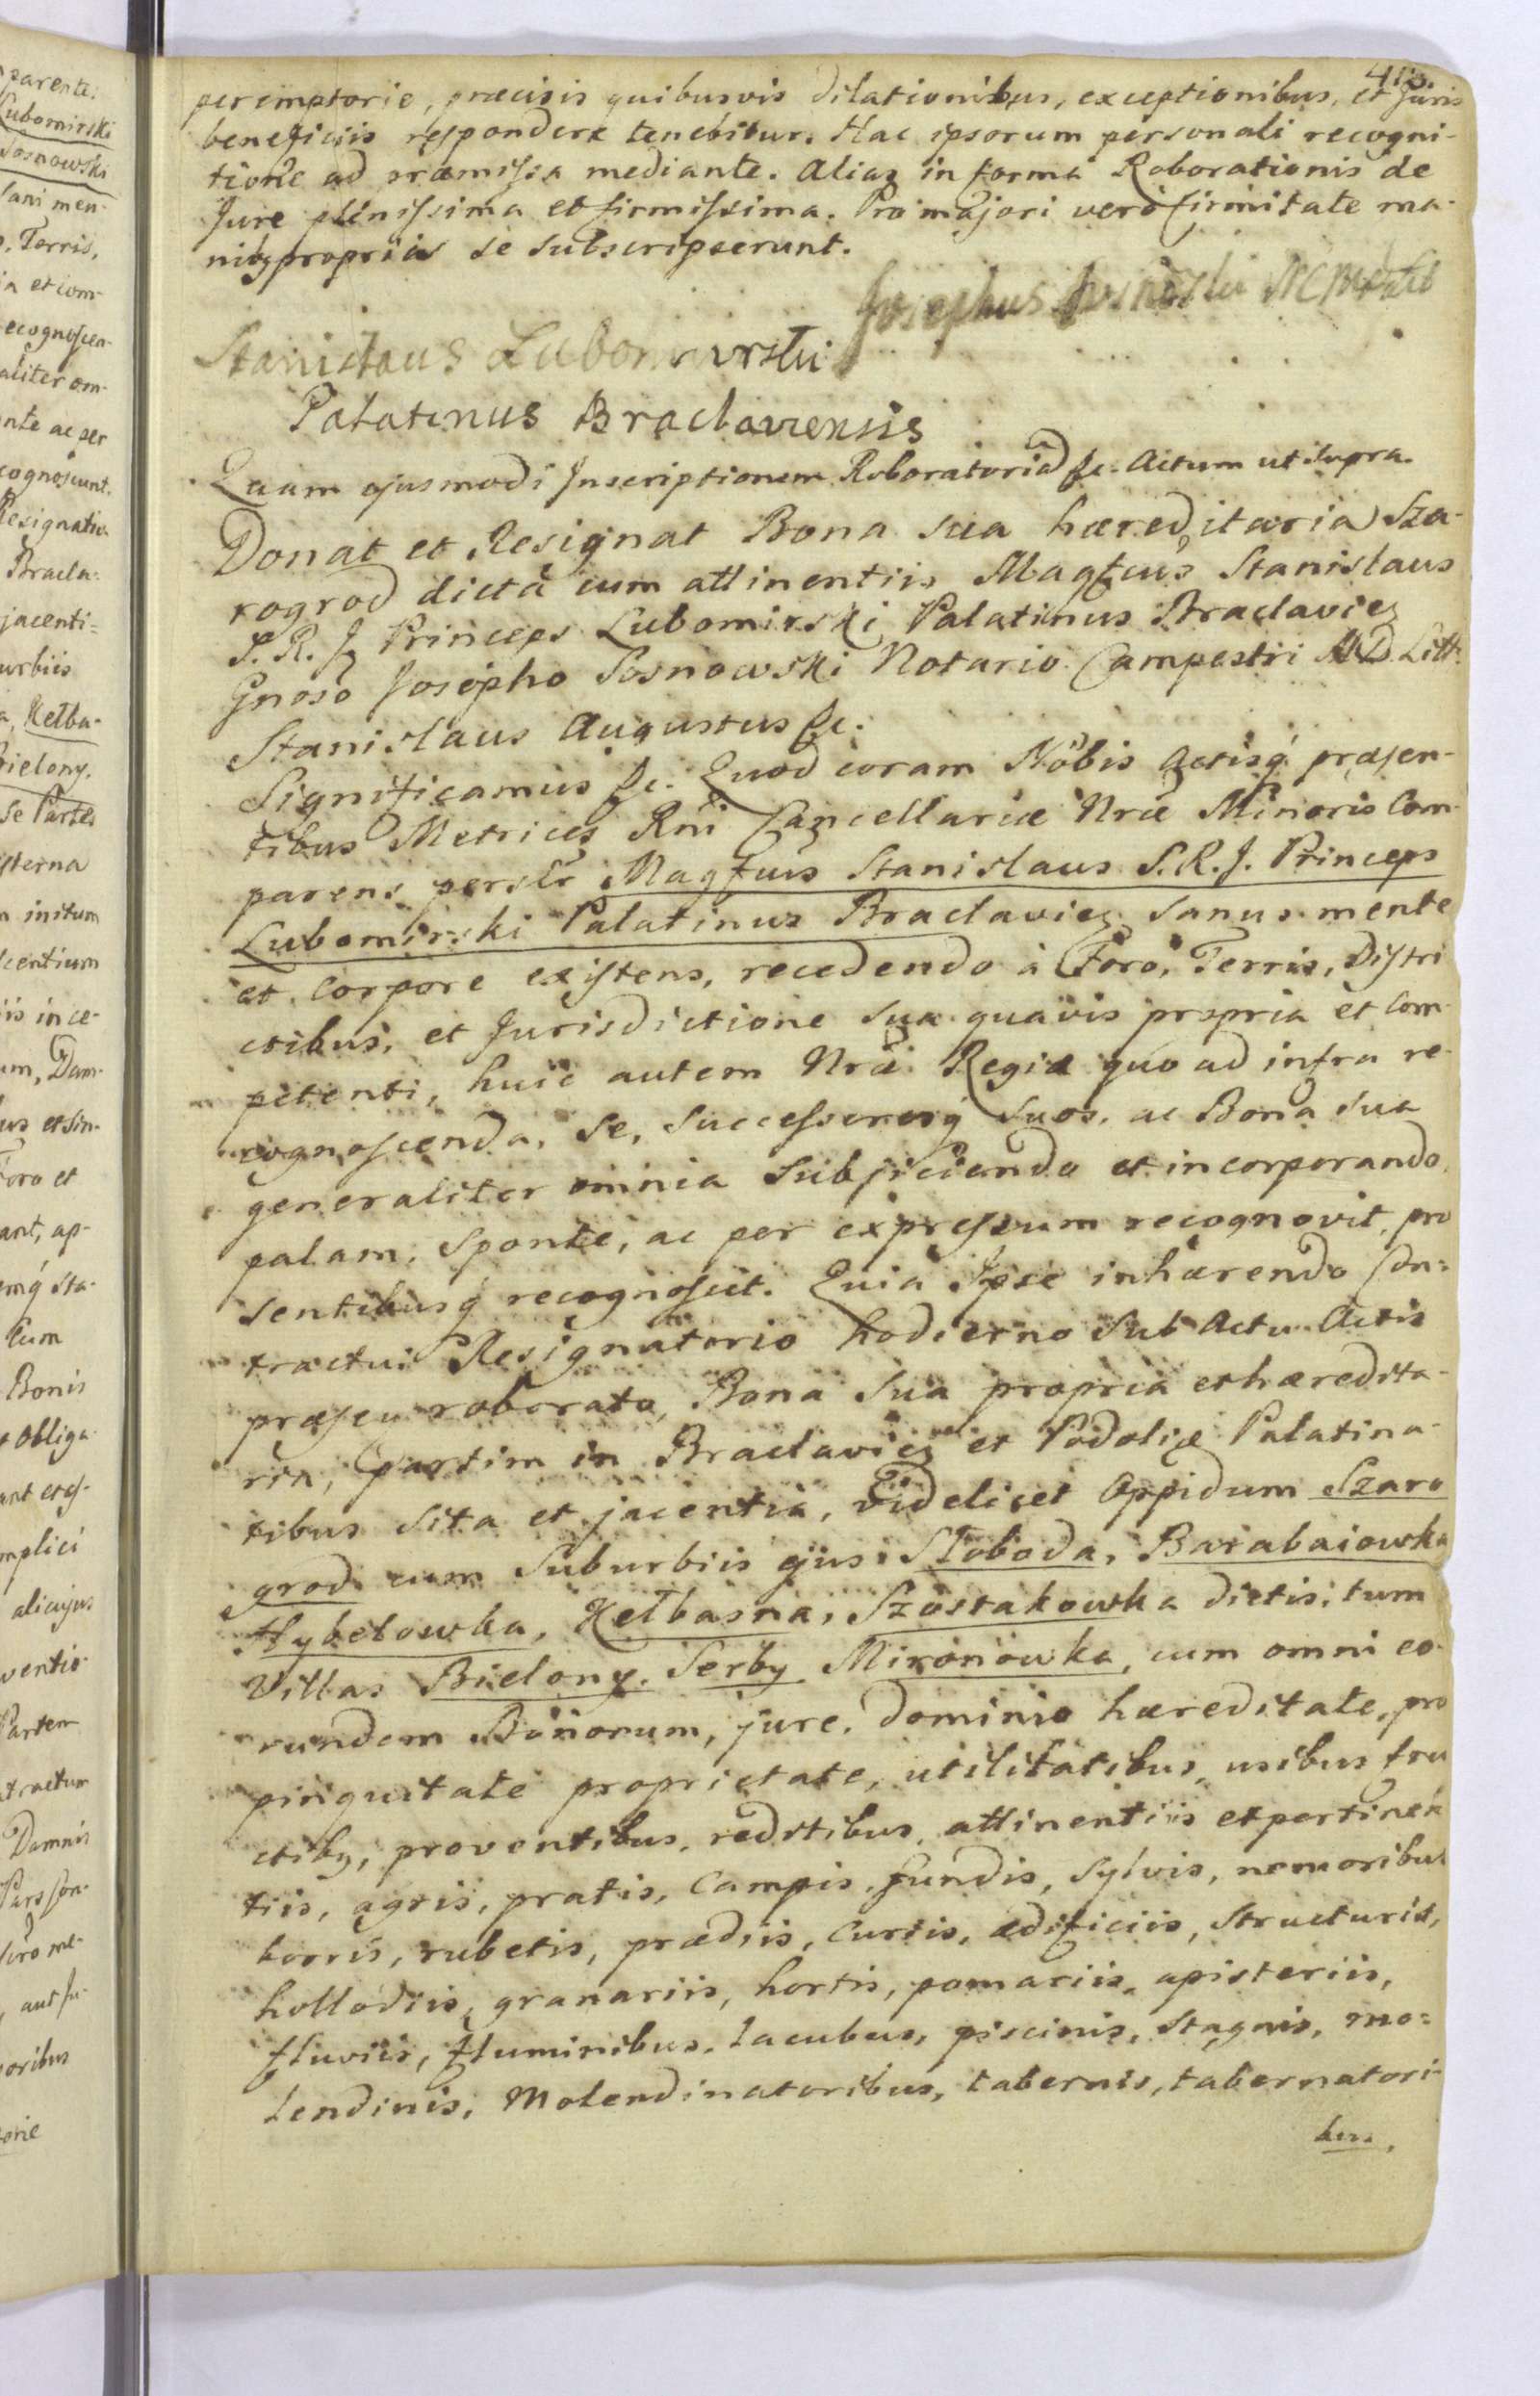 parente.
Lubomirski
Sosnowski
sani men-
Terris,
ia et com-
ecognoscen-
aliter om-
nte ac per
cognoscunt.
Resignatio-
Bracla-
jacenti=
urbiis
a, Kelba-
Bielony,
se Partes
sterna
n initum
centium
iis in ce-
um, Dam-
us et sin-
Foro et
ant, ap-
emq́ sta-
Cum
Bonis
t obliga-
ant et es-
mplici
alicujus
ventio-
Partem
ntractum
Damnis
Pars Con-
fero me-
, aut su-
oribus
orie
peremptorie, præcisis quibusvis dilationibus, exceptionibus, et Juris
beneficiis respondere tenebitur. Hac ipsorum personali recogni-
tione ad præmissa mediante. Alias in forma Roborationis de
Jure plenissima et firmissima. Pro majori vero firmitate ma-
nibq propriis se subscripserunt.
Josephus Sosnowski
Stanislaus Lubomirski
Palatinus Braclaviensis
Quam ejusmodi Inscriptionem Roboratoriã &c. Actum ut supra.
Donat et Resignat Bona sua hæreditaria Sza-
rogrod dicta cum attinentiis Magfcus Stanislaus
S. R. J. Princeps Lubomirski Palatinus Braclavieq
Gnoso Josepho Sosnowski Notario Campestri M D. Litt.
Stanislaus Augustus &c.
Significamus &c. Quod coram Nobis Actisq́ præsen-
tibus Metrices Rni Cancellariæ Nræ Minoris Com-
parens persłr Magfcus Stanislaus S. R. J. Princeps
Lubomirski Palatinus Braclavieq sanus mente
et corpore existens, recedendo à Foro, Terris, Distri
ctibus, et Jurisdictione sua quavis propria et Com-
petenti, huic autem Nræ Regiæ quo ad infra re-
cognoscenda, se, successoresq́ suos, ac Bona sua
generaliter omnia subjiciendo et incorporando,
palam, sponte, ac per expressum recognovit, præ
sentibusq́ recognoscit. Quia Ipse inhærendo Con=
tractui Resignatorio hodierno sub Actu Actis
præsen roborato, Bona sua propria et hæredita-
ria, partim in Braclavieq et Podoliæ Palatina-
tibus sita et jacentia, videlicet Oppidum Szaro
grod cum Suburbiis ejus, Słoboda, Barabaiowka
Hybelowka, Kełbasna, Szostakowka dictis, tum
Villas Bielony, Serby, Mironówka, cum omni eo-
rundem Bonorum, jure, dominio hæreditate, pro
pinquitate proprietate, utilitatibus, usibus fru
ctibq, proventibus, reditibus, attinentiis et pertinen
tiis, agris, pratis, Campis, fundis, sylvis, nemoribus
borris, rubetis, prædiis, Curiis, ædificiis, structuris,
hollodiis, granariis, hortis, pomariis, apisteriis,
fluviis, fluminibus, lacubus, piscinis, stagnis, mo=
lendinis, Molendinatoribus, tabernis, tabernatori-
bus,